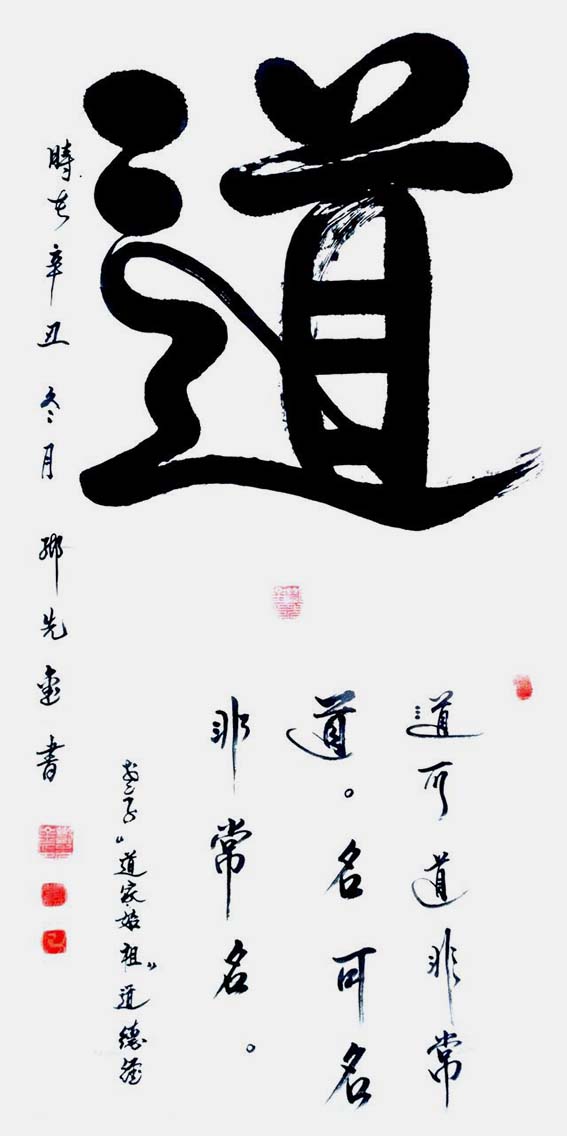 道
道可道非常
道。名可名
非常名。
老子"道家始祖"道德經
時在辛丑 冬月 鄉先金書